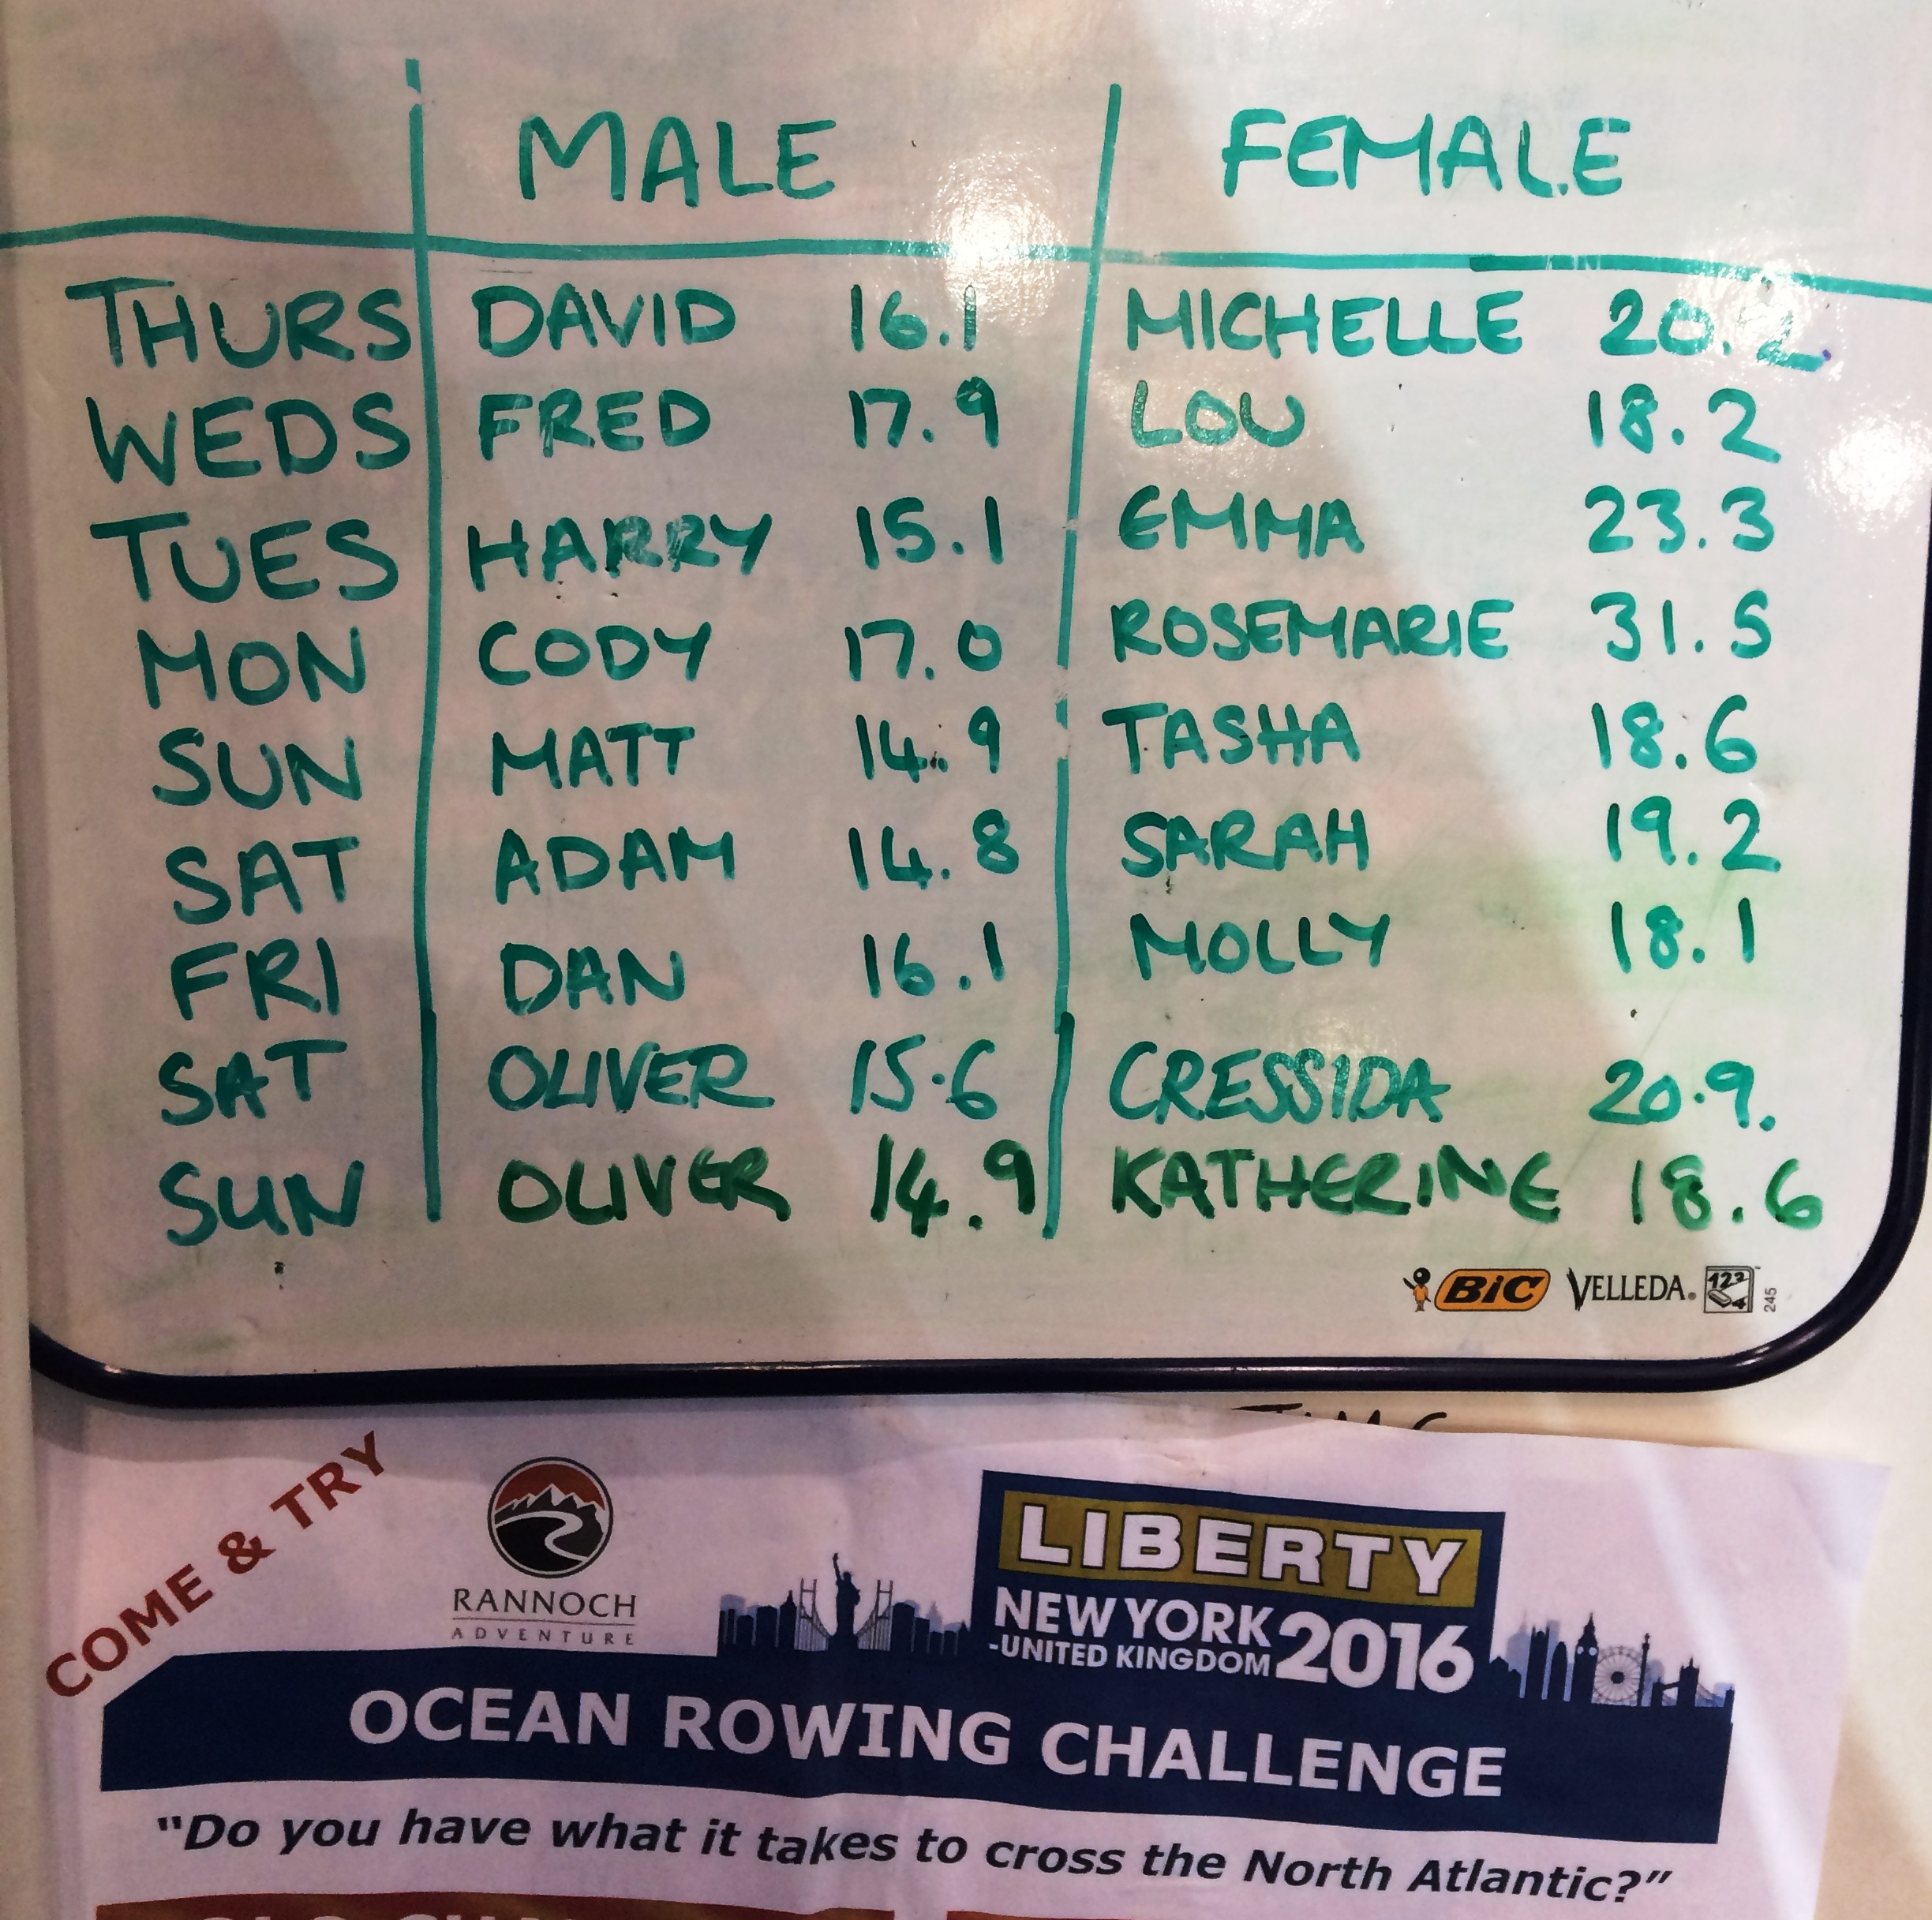 MALE FEMALE
THURS DAVID 16.1 MICHELLE 20.2
WEDS FRED 17.9 LOU 18.2
TUES HARRY 15.1 EMMA 23.3
MON CODY 17.0 ROSEMARIE 31.5
SUN MATT 14.9 TASHA 18.6
SAT ADAM 14.8 SARAH 19.2
FRI DAN 16.1 MOLLY 18.1
SAT OLIVER 15.6 CRESSIDA 20.9.
SUN OLIVER 14.9 KATHERINE 18.6
BIC VELLEDA® 245
COME & TRY
RANNOCH
ADVENTURE
LIBERTY
NEW YORK
-UNITED KINGDOM 2016
OCEAN ROWING CHALLENGE
"Do you have what it takes to cross the North Atlantic?"